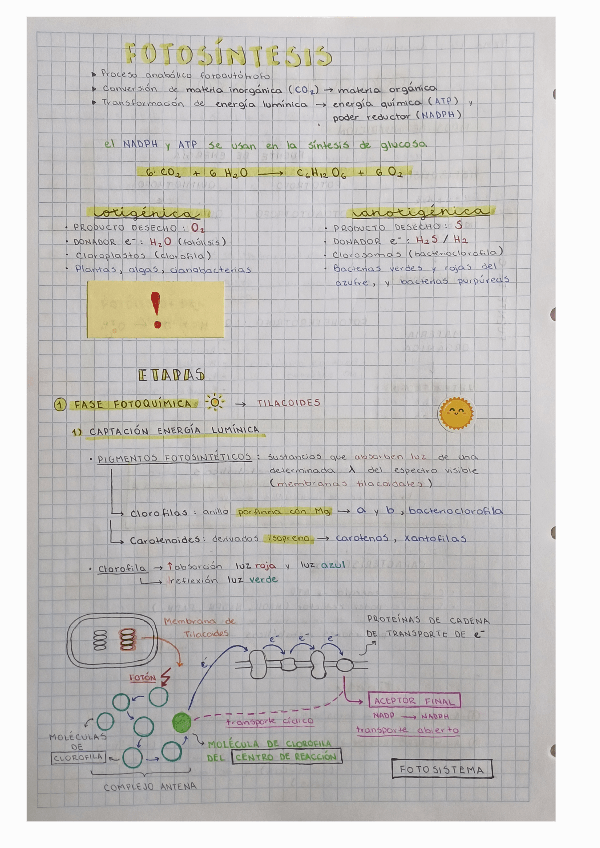 FOTOSÍNTESIS
▸ Proceso anabólico fotoautótrofo
▸ Conversión de materia inorgánica (CO₂) → materia orgánica
▸ Transformación de energía lumínica → energía química (ATP) y
poder reductor (NADPH)
el NADPH y ATP se usan en la síntesis de glucosa
6 CO₂ + 6 H₂O → C₆H₁₂O₆ + 6 O₂
oxigénica
· PRODUCTO DESECHO : O₂
· DONADOR e⁻ : H₂O (fotólisis)
· Cloroplastos (clorofila)
· Plantas, algas, cianobacterias
anoxigénica
· PRODUCTO DESECHO : S
· DONADOR e⁻ : H₂S / H₂
· Clorosomas (bacterioclorofila)
· Bacterias verdes y rojas del
azufre, y bacterias purpúreas
!
ETAPAS
① FASE FOTOQUÍMICA → TILACOIDES
1) CAPTACIÓN ENERGÍA LUMÍNICA
· PIGMENTOS FOTOSINTÉTICOS : sustancias que absorben luz de una
determinada λ del espectro visible
(membranas tilacoidales)
→ Clorofilas : anillo porfirina con Mg → a y b, bacterioclorofila
→ Carotenoides : derivados isopreno → carotenos, xantofilas
· Clorofila → ↑absorción luz roja y luz azul
→ reflexión luz verde
Membrana de
Tilacoides
FOTÓN
e⁻
e⁻ e⁻ e⁻
PROTEÍNAS DE CADENA
DE TRANSPORTE DE e⁻
ACEPTOR FINAL
NADP → NADPH
transporte abierto
transporte cíclico
MOLÉCULAS
DE
CLOROFILA
MOLÉCULA DE CLOROFILA
DEL CENTRO DE REACCIÓN
COMPLEJO ANTENA
FOTOSISTEMA